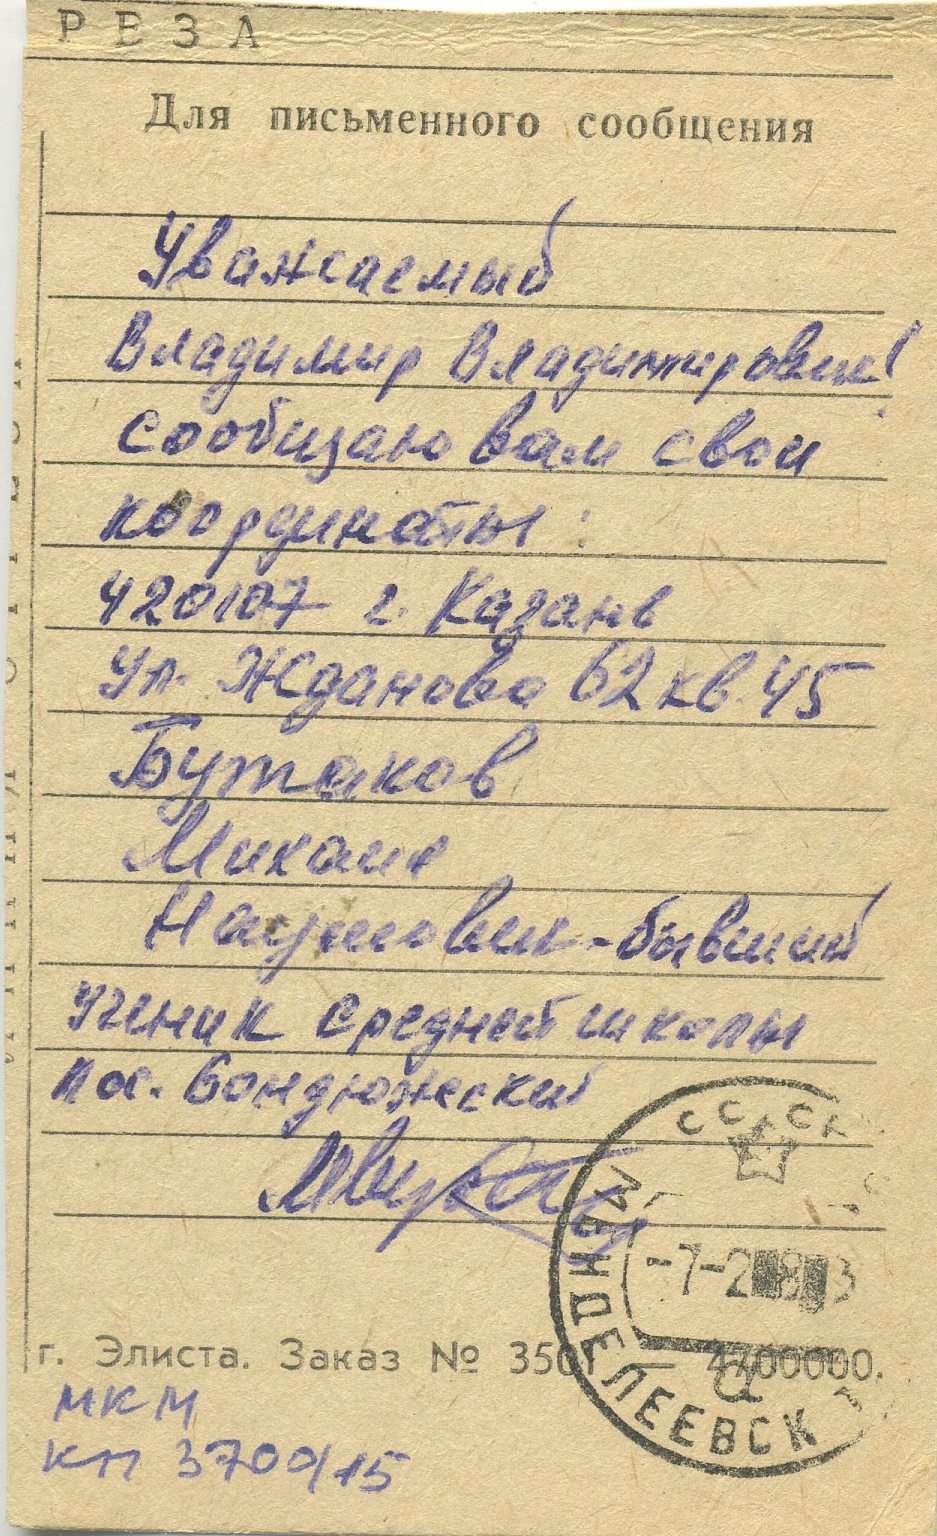 РЕЗА
Для письменного сообщения
Уважаемый
Владимир Владимирович!
сообщаю вам свои
координаты:
420107 г. Казань
ул. Жданова 62 кв. 45
Бутаков
Михаил
Наумович - бывший
ученик средней школы
пос. Бондюжский
СССР
МЕНДЕЛЕЕВСК
-7-2
г. Элиста. Заказ № 350
4700000.
МКМ
КП 3700/15